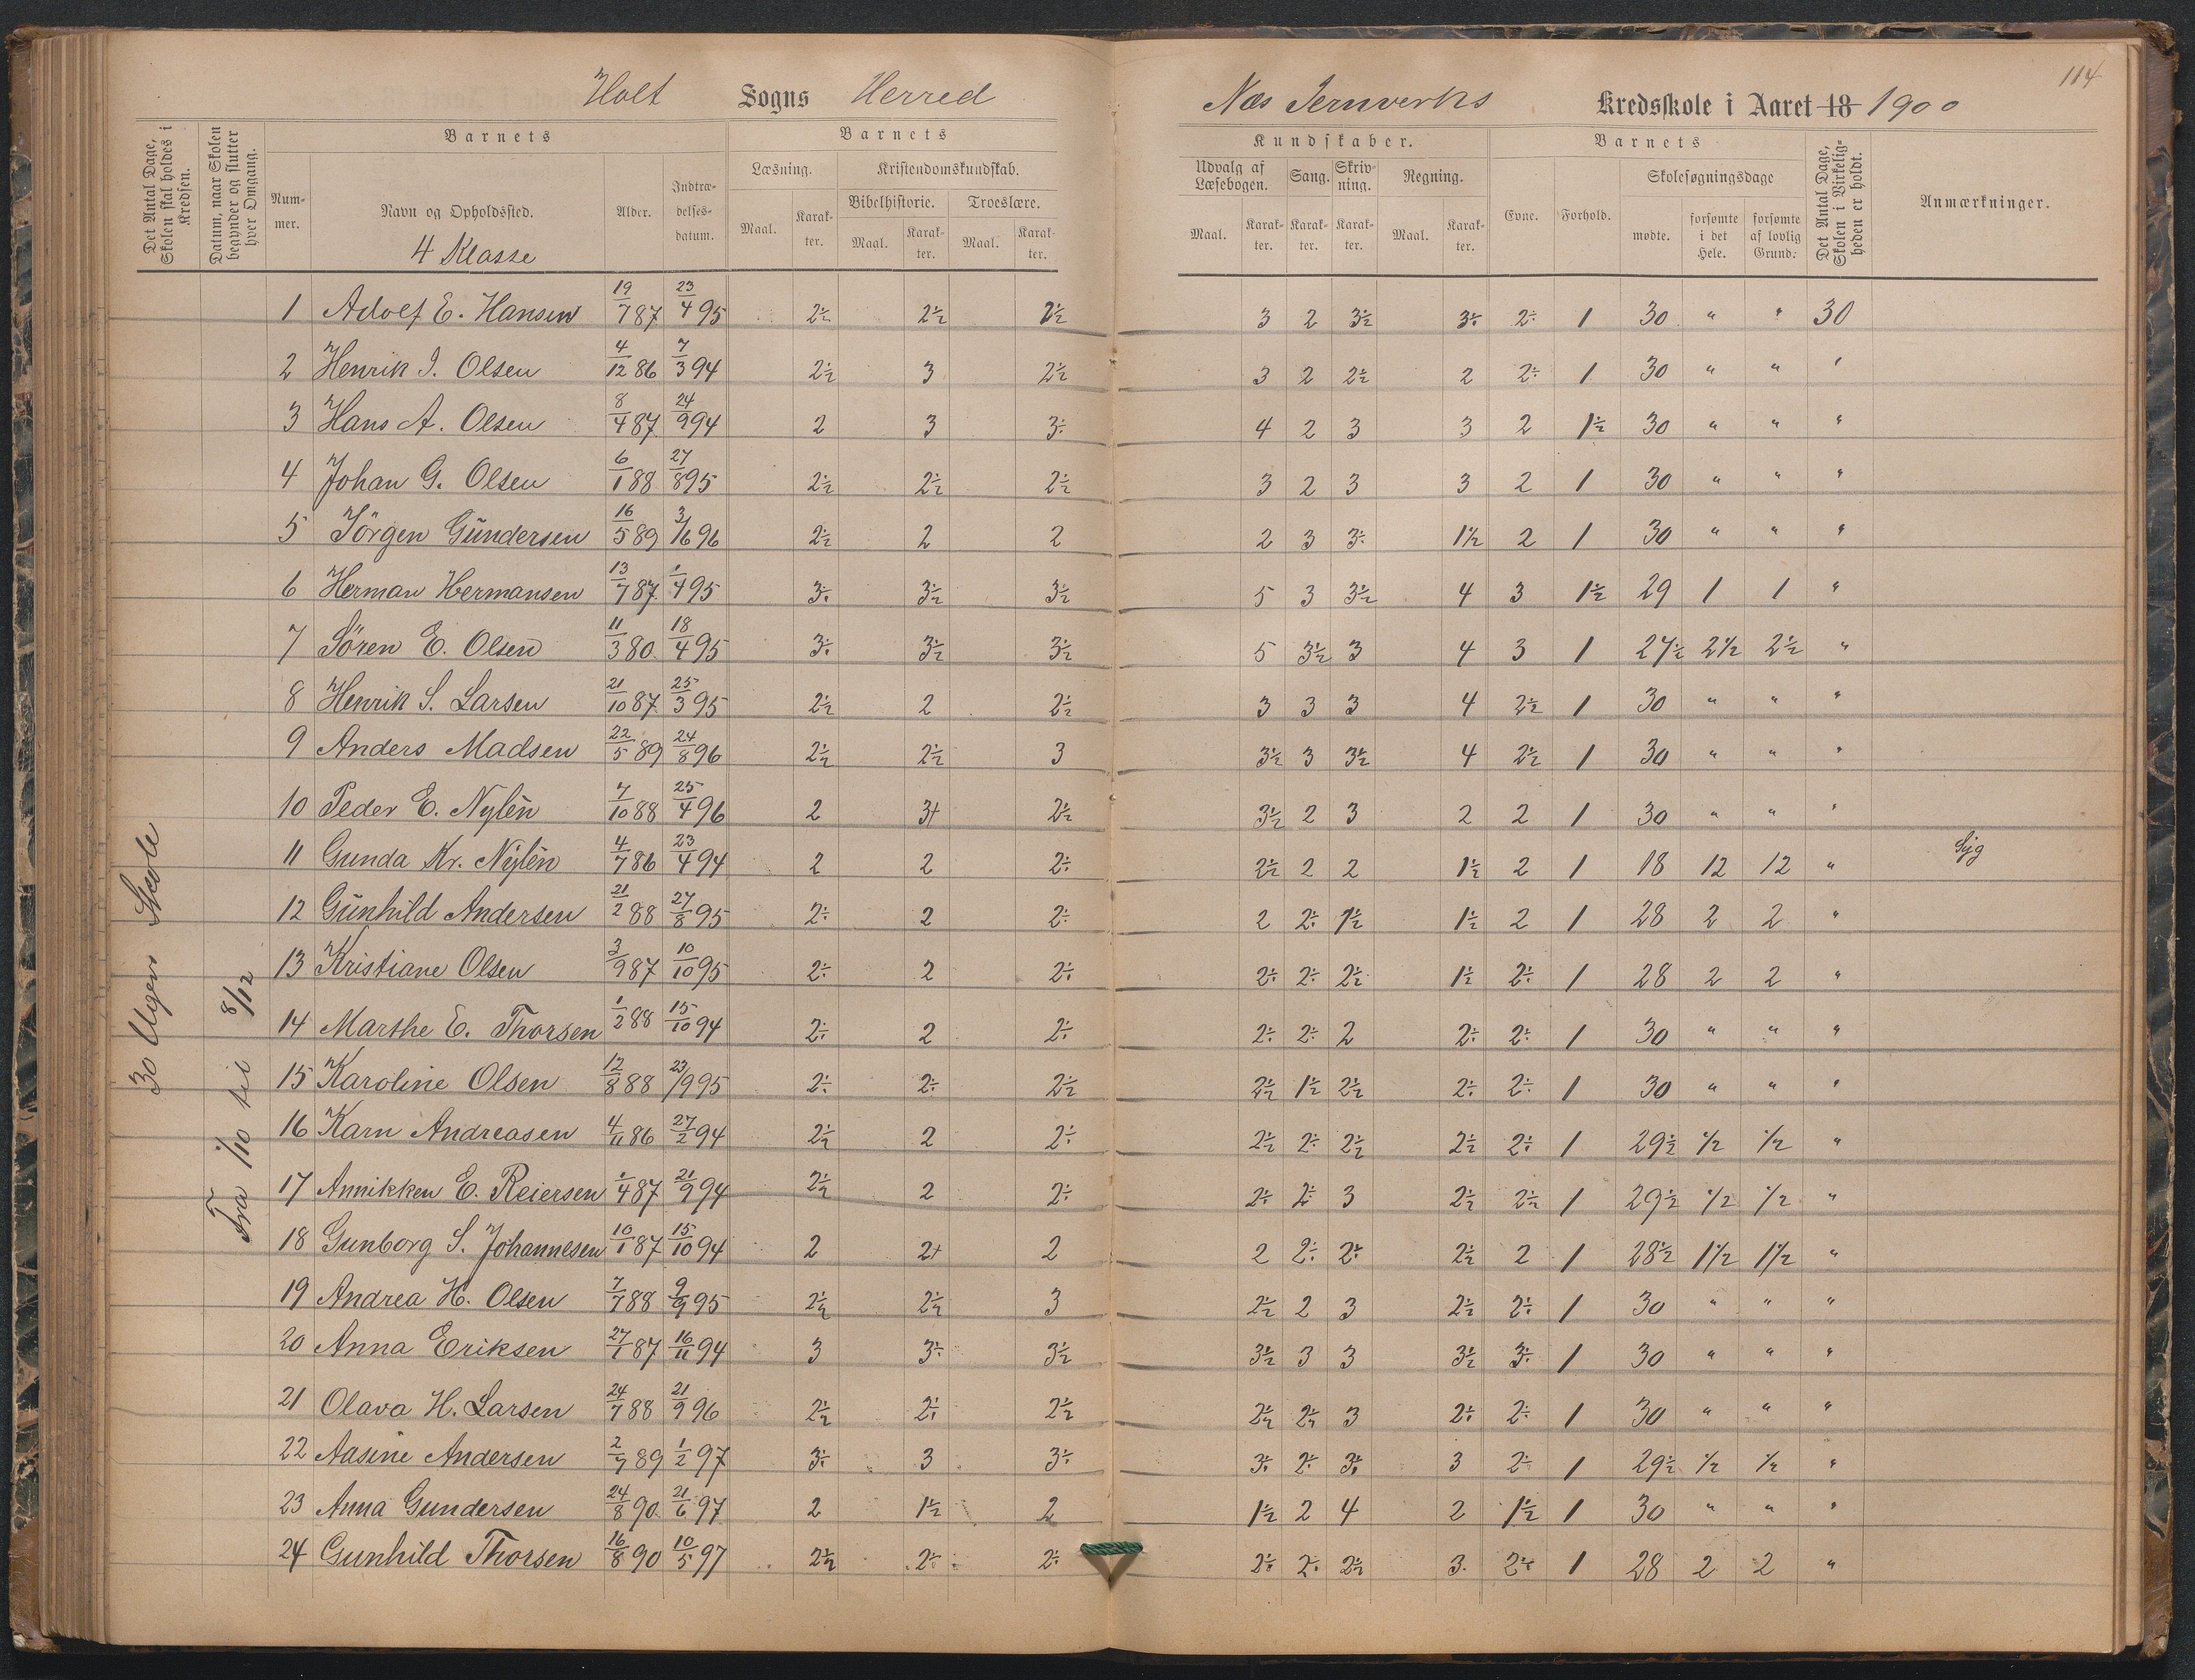 114
Holt Sogns Herred
Næs Jernverks Kredsskole i Aaret 18 1900
Det Antal Dage, Skolen skal holdes i Kredsen.
Datum, naar Skolen begynder og slutter hver Omgang.
Barnets
Nummer.
Navn og Opholdssted.
Alder.
Indtrædelsesdatum.
4 Klasse
Barnets
Læsning.
Kristendomskundskab.
Bibelhistorie. Troeslære.
Maal. Karakter. Maal. Karakter. Maal. Karakter.
Kundskaber.
Udvalg af Læsebogen. Sang. Skrivning. Regning.
Maal. Karakter. Karakter. Karakter. Maal. Karakter.
Barnets
Evne. Forhold.
Skolesøgningsdage
mødte. forsømte i det Hele. forsømte af lovlig Grund.
Det Antal Dage, Skolen i Virkeligheden er holdt.
Anmærkninger.
30 Ugers Skole
Fra 1/10 til 8/12
1 Adolf E. Hansen 19/7 87 23/4 95 2½ 2½ 2½ 3 2 3½ 3÷ 2÷ 1 30 " " 30
2 Henrik J. Olsen 4/12 86 7/3 94 2½ 3 2½ 3 2 2½ 2 2÷ 1 30 " " "
3 Hans A. Olsen 8/4 87 24/9 94 2 3 3÷ 4 2 3 3 2 1½ 30 " " "
4 Johan G. Olsen 6/1 88 27/8 95 2½ 2½ 2½ 3 2 3 3 2 1 30 " " "
5 Jörgen Gundersen 16/5 89 3/6 96 2½ 2 2 2 3 3÷ 1½ 2 1 30 " " "
6 Herman Hermansen 13/7 87 1/4 95 3÷ 3½ 3½ 5 3 3½ 4 3 1½ 29 1 1 "
7 Sören E. Olsen 11/3 80 18/4 95 3÷ 3½ 3½ 5 3½ 3 4 3 1 27½ 2½ 2½ "
8 Henrik S. Larsen 21/10 87 25/3 95 2½ 2 2½ 3 3 3 4 2½ 1 30 " " "
9 Anders Madsen 22/5 89 24/8 96 2½ 2½ 3 3½ 3 3½ 4 2½ 1 30 " " "
10 Peder E. Nylén 7/10 88 25/4 96 2 3+ 2½ 3½ 2 3 2 2 1 30 " " "
11 Gunda Kr. Nylén 4/7 86 23/4 94 2 2 2÷ 2½ 2 2 1½ 2 1 18 12 12 " Syg
12 Gunhild Andersen 21/2 88 27/8 95 2÷ 2 2÷ 2 2÷ 1½ 1½ 2 1 28 2 2 "
13 Kristiane Olsen 3/9 87 10/10 95 2÷ 2 2÷ 2÷ 2÷ 2½ 1½ 2÷ 1 28 2 2 "
14 Marthe E. Thorsen 1/2 88 15/10 94 2÷ 2 2÷ 2÷ 2÷ 2 2÷ 2÷ 1 30 " " "
15 Karoline Olsen 12/8 88 23/9 95 2÷ 2÷ 2½ 2½ 1½ 2½ 2÷ 2÷ 1 30 " " "
16 Karn Andreasen 4/11 86 27/2 94 2½ 2 2÷ 2½ 2÷ 2½ 2½ 2÷ 1 29½ ½ ½ "
17 Annikken E. Reiersen 1/4 87 21/9 94 2½ 2 2÷ 2÷ 2÷ 3 2½ 2½ 1 29½ ½ ½ "
18 Gunborg S. Johannesen 10/1 87 15/10 94 2 2+ 2 2 2÷ 2÷ 2½ 2 1 28½ 1½ 1½ "
19 Andrea H. Olsen 7/7 88 9/9 95 2½ 2½ 3 2½ 2 3 2½ 2÷ 1 30 " " "
20 Anna Eriksen 27/1 87 16/11 94 3 3÷ 3½ 3½ 3 3 3½ 3÷ 1 30 " " "
21 Olava H. Larsen 24/7 88 21/9 96 2½ 2÷ 2½ 2½ 2½ 3 2÷ 2÷ 1 30 " " "
22 Aasine Andersen 2/7 89 1/2 97 3÷ 3 3÷ 3÷ 2÷ 3÷ 3 2÷ 1 29½ ½ ½ "
23 Anna Gundersen 24/8 90 21/6 97 2 1½ 2 1½ 2 4 2 1½ 1 30 " " "
24 Gunhild Thorsen 16/8 90 10/5 97 2½ 2÷ 2÷ 2÷ 2÷ 2½ 3 2÷ 1 28 2 2 "